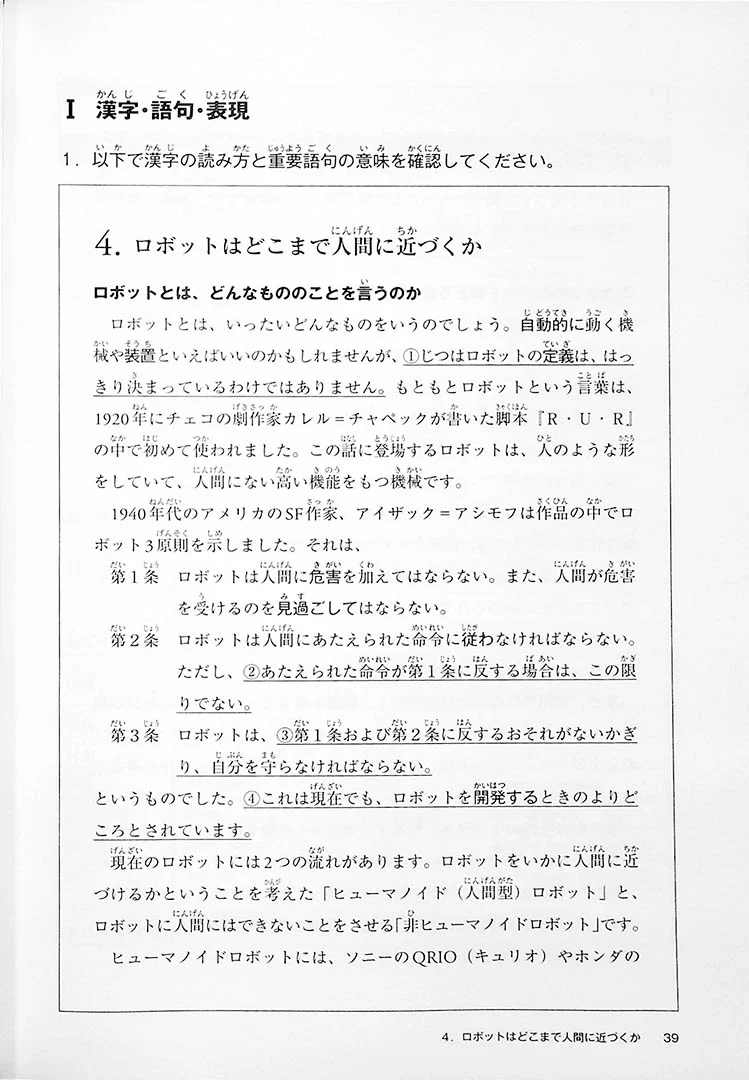 Ⅰ 漢字・語句・表現
1．以下で漢字の読み方と重要語句の意味を確認してください。
4. ロボットはどこまで人間に近づくか
ロボットとは、どんなもののことを言うのか
ロボットとは、いったいどんなものをいうのでしょう。自動的に動く機
械や装置といえばいいのかもしれませんが、①じつはロボットの定義は、はっ
きり決まっているわけではありません。もともとロボットという言葉は、
1920年にチェコの劇作家カレル＝チャペックが書いた脚本『R・U・R』
の中で初めて使われました。この話に登場するロボットは、人のような形
をしていて、人間にない高い機能をもつ機械です。
1940年代のアメリカのSF作家、アイザック＝アシモフは作品の中でロ
ボット3原則を示しました。それは、
第1条 ロボットは人間に危害を加えてはならない。また、人間が危害
を受けるのを見過ごしてはならない。
第2条 ロボットは人間にあたえられた命令に従わなければならない。
ただし、②あたえられた命令が第1条に反する場合は、この限
りでない。
第3条 ロボットは、③第1条および第2条に反するおそれがないかぎ
り、自分を守らなければならない。
というものでした。④これは現在でも、ロボットを開発するときのよりど
ころとされています。
現在のロボットには2つの流れがあります。ロボットをいかに人間に近
づけるかということを考えた「ヒューマノイド（人間型）ロボット」と、
ロボットに人間にはできないことをさせる「非ヒューマノイドロボット」です。
ヒューマノイドロボットには、ソニーのQRIO（キュリオ）やホンダの
4．ロボットはどこまで人間に近づくか 39